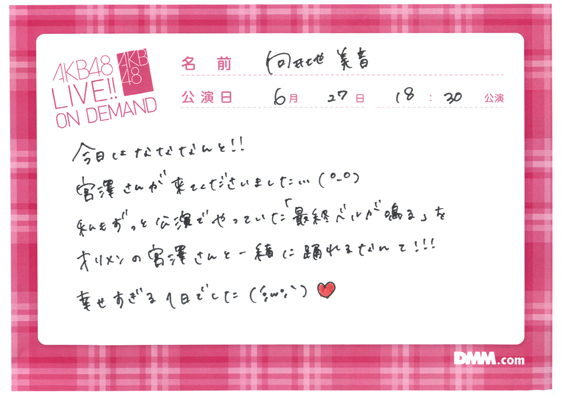 AKB48
LIVE!!
ON DEMAND
AKB
48
名前 向井地 美音
公演日 6月 27日 18:30 公演
今日はなななんと!!
宮澤さんが来てくださいました…(°_°)
私もずっと公演でやっていた「最終ベルが鳴る」を
オリメンの宮澤さんと一緒に踊れるなんて!!!
幸せすぎる1日でした(´;ω;`)❤
DMM.com